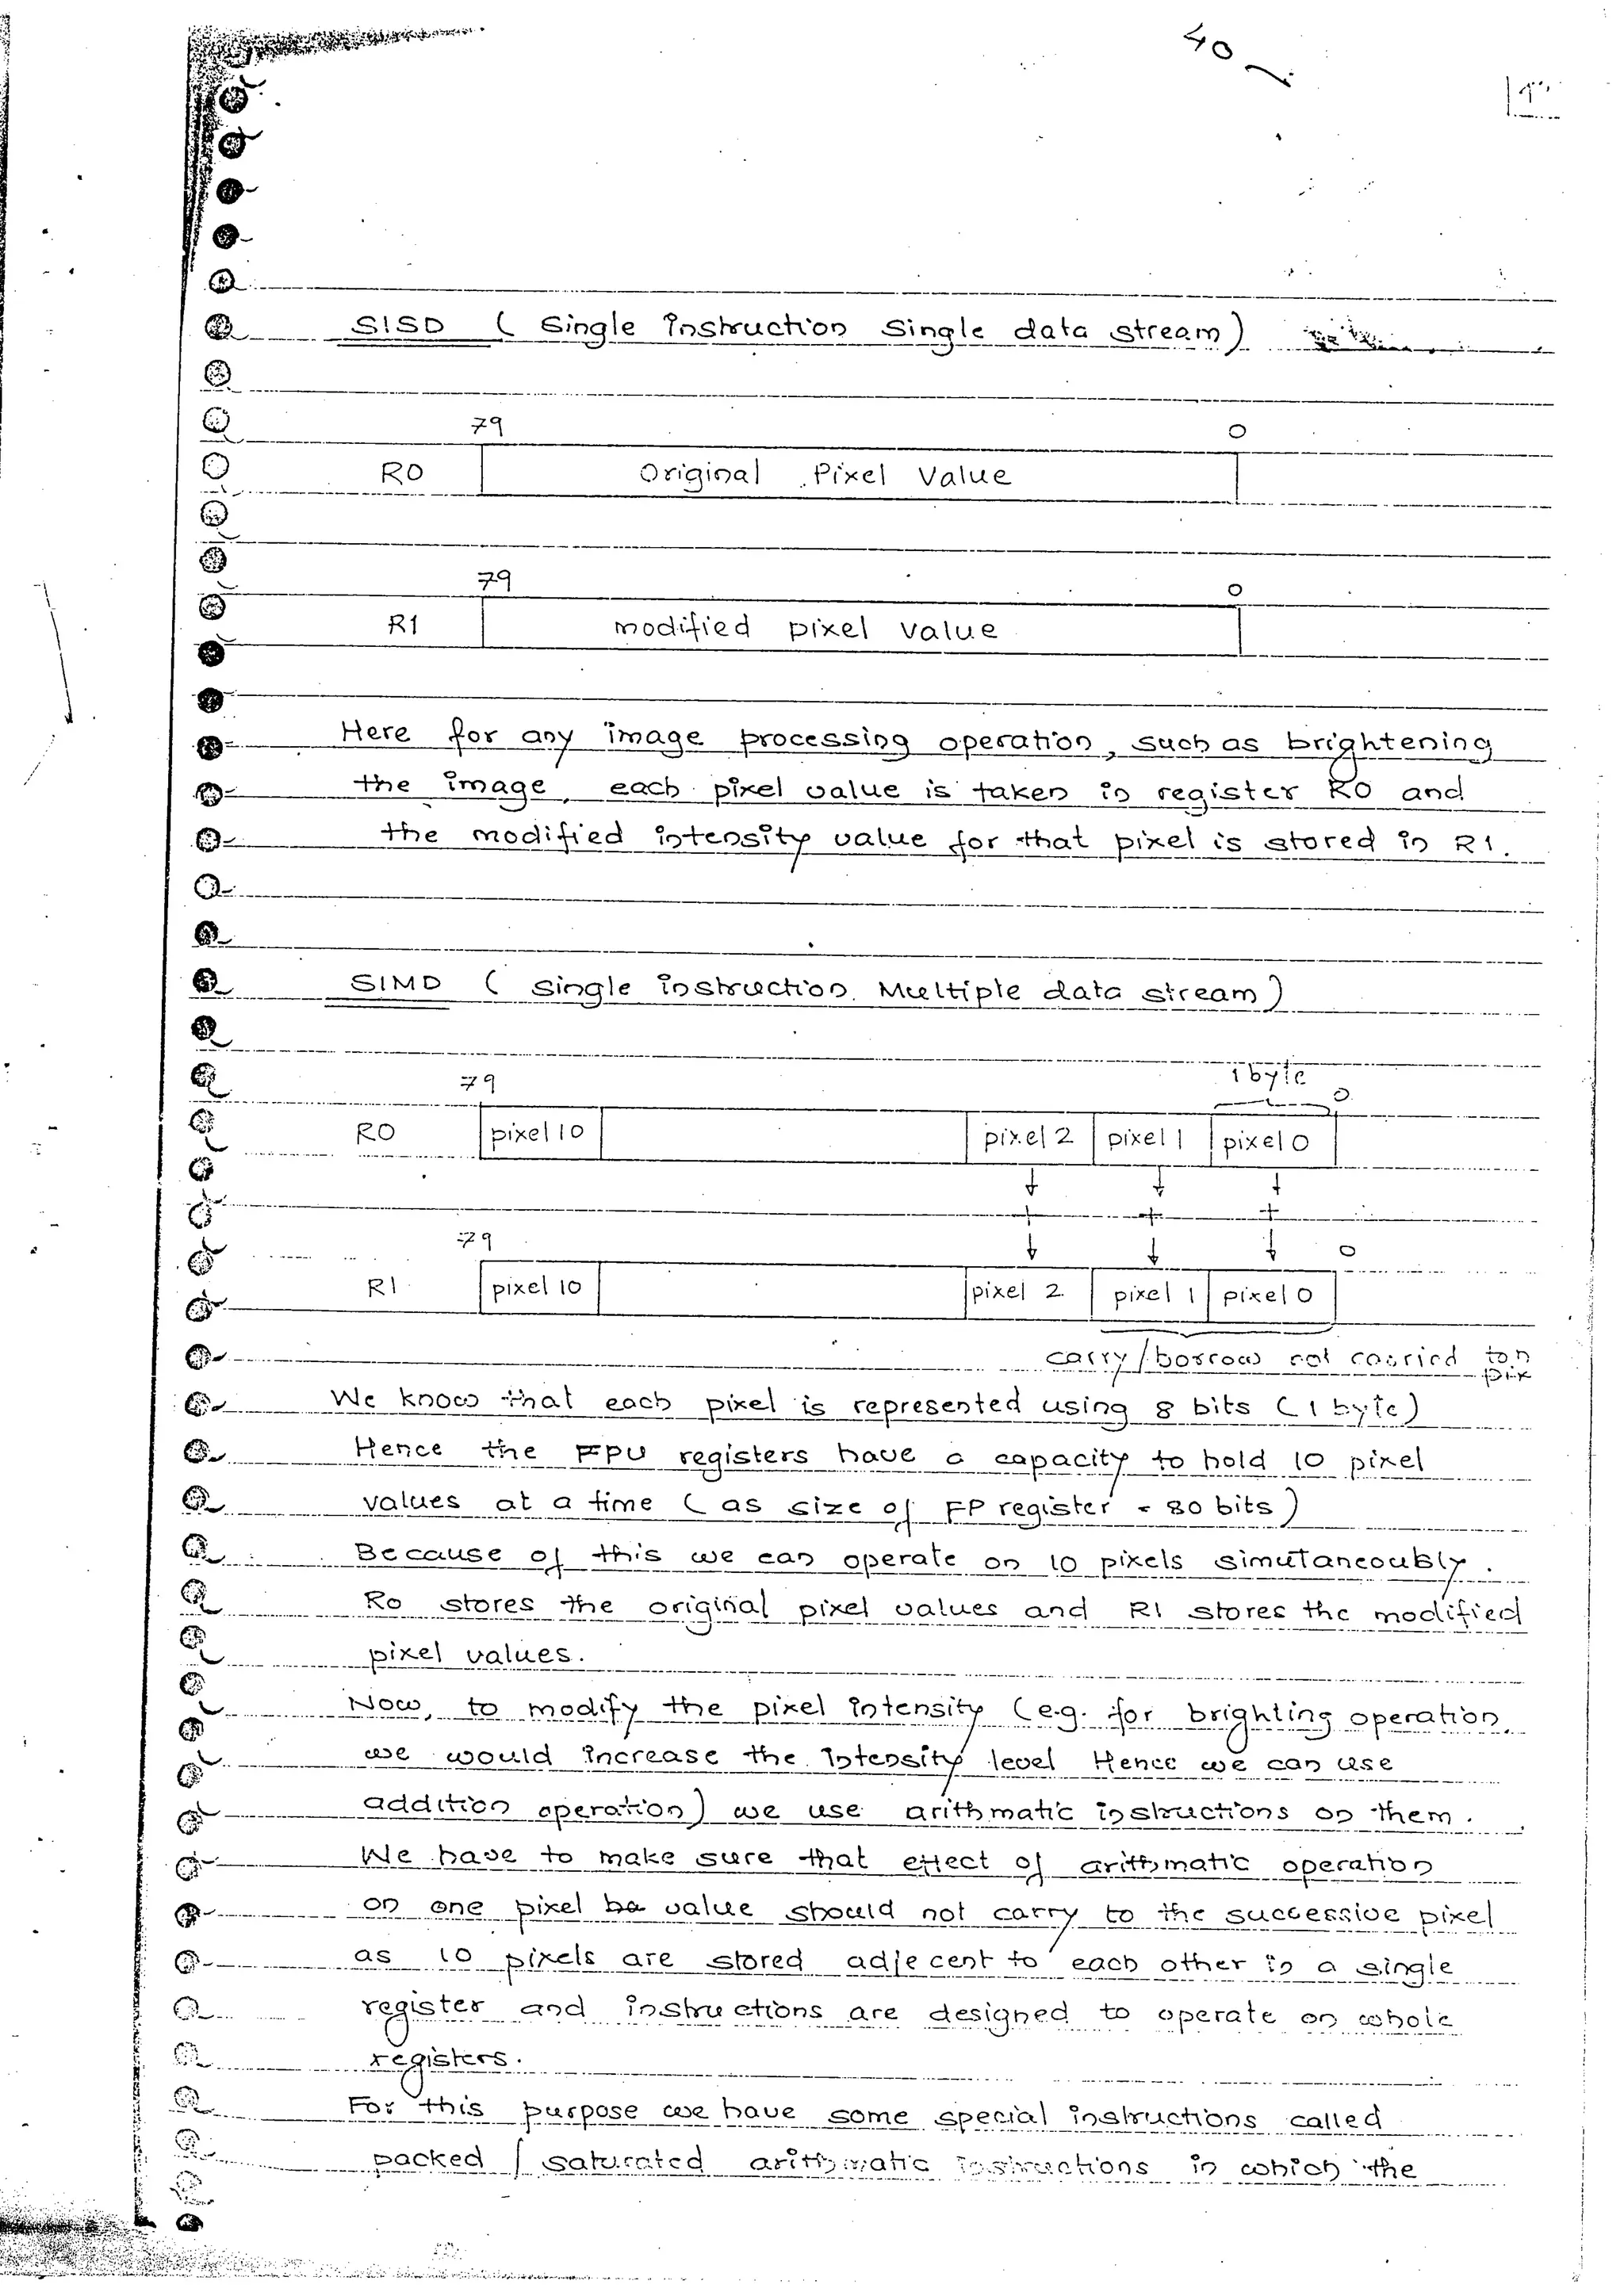 40
SISD ( Single Instruction Single data stream )
79 0
R0 Original Pixel Value
79 0
R1 modified pixel value
Here for any image processing operation, such as brightening
the image, each pixel value is taken in register R0 and
the modified intensity value for that pixel is stored in R1.
SIMD ( Single instruction Multiple data stream )
79 1 byte 0
R0 pixel 10 pixel 2 pixel 1 pixel 0
+ + +
79 0
R1 pixel 10 pixel 2 pixel 1 pixel 0
carry / borrow not carried to n
pix
We know that each pixel is represented using 8 bits ( 1 byte )
Hence the FPU registers have a capacity to hold 10 pixel
values at a time ( as size of FP register = 80 bits )
Because of this we can operate on 10 pixels simutaneoubly.
R0 stores the original pixel values and R1 stores the modified
pixel values.
Now, to modify the pixel intensity (e.g. for brighting operation,
we would increase the intensity level Hence we can use
addition operation) we use arithmatic instructions on them.
We have to make sure that effect of arithmatic operation
on one pixel value should not carry to the successive pixel
as 10 pixels are stored adjecent to each other in a single
register and instructions are designed to operate on whole
registers.
For this purpose we have some special instructions called
packed / saturated arithmatic instructions in which the